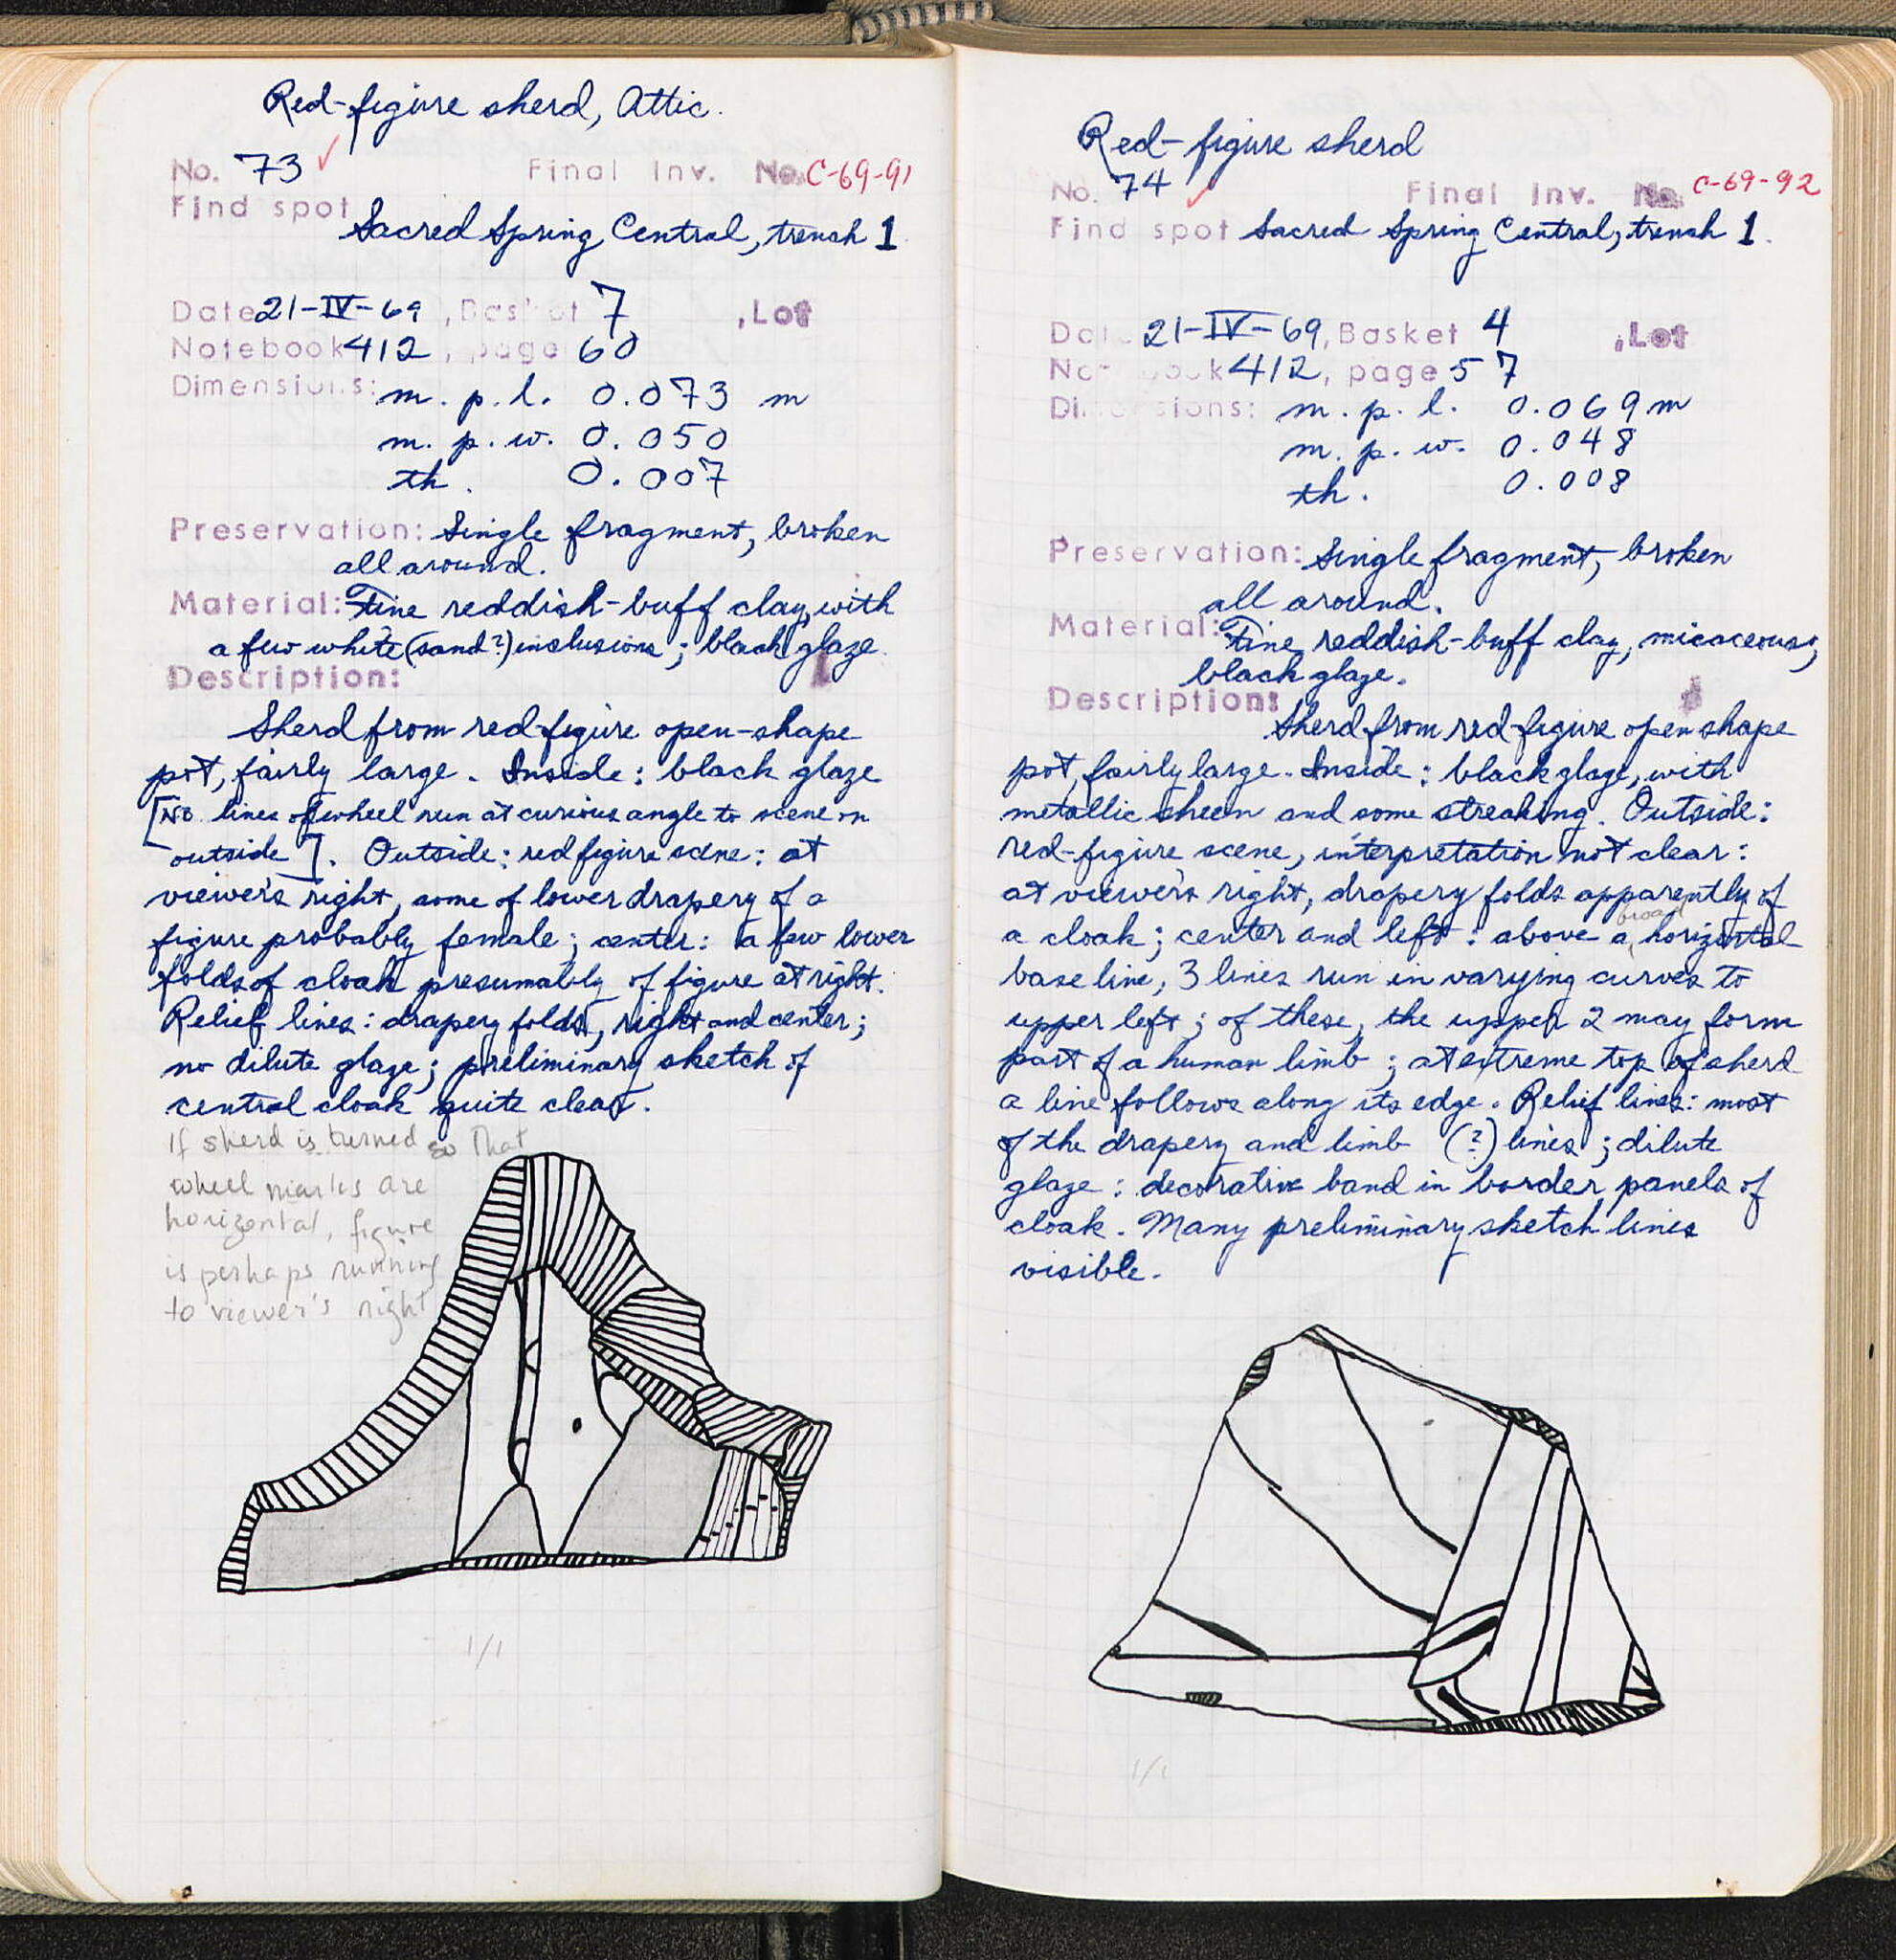 Red-figure sherd, Attic.
No. 73 ✓ Final Inv. No. C-69-91
Find spot Sacred Spring Central, trench 1.
Date 21-IV-69, Basket 7 , Lot
Notebook 412, page 60
Dimensions: m. p. l. 0.073 m
m. p. w. 0.050
th. 0.007
Preservation: Single fragment, broken
all around.
Material: Fine reddish-buff clay, with
a few white (sand?) inclusions; black glaze.
Description:
Sherd from red-figure open-shape
pot, fairly large. Inside: black glaze
[NB. lines of wheel run at curious angle to scene on
outside]. Outside: red figure scene: at
viewer's right, some of lower drapery of a
figure probably female; center: a few lower
folds of cloak presumably of figure at right.
Relief lines: drapery folds, right and center;
no dilute glaze; preliminary sketch of
central cloak quite clear.
If sherd is turned so that
wheel marks are
horizontal, figure
is perhaps running
to viewer's right
1/1
Red-figure sherd
No. 74 ✓ Final Inv. No. C-69-92
Find spot Sacred Spring Central, trench 1.
Date 21-IV-69, Basket 4 , Lot
Notebook 412, page 57
Dimensions: m. p. l. 0.069 m
m. p. w. 0.048
th. 0.008
Preservation: Single fragment, broken
all around.
Material: Fine reddish-buff clay, micaceous;
black glaze.
Description:
Sherd from red-figure open shape
pot, fairly large. Inside: black glaze, with
metallic sheen and some streaking. Outside:
red-figure scene, interpretation not clear:
at viewer's right, drapery folds apparently of
a cloak; center and left: above a broad horizontal
base line, 3 lines run in varying curves to
upper left; of these, the upper 2 may form
part of a human limb; at extreme top of sherd
a line follows along its edge. Relief lines: most
of the drapery and limb (?) lines; dilute
glaze: decorative band in border panels of
cloak. Many preliminary sketch lines
visible.
1/1